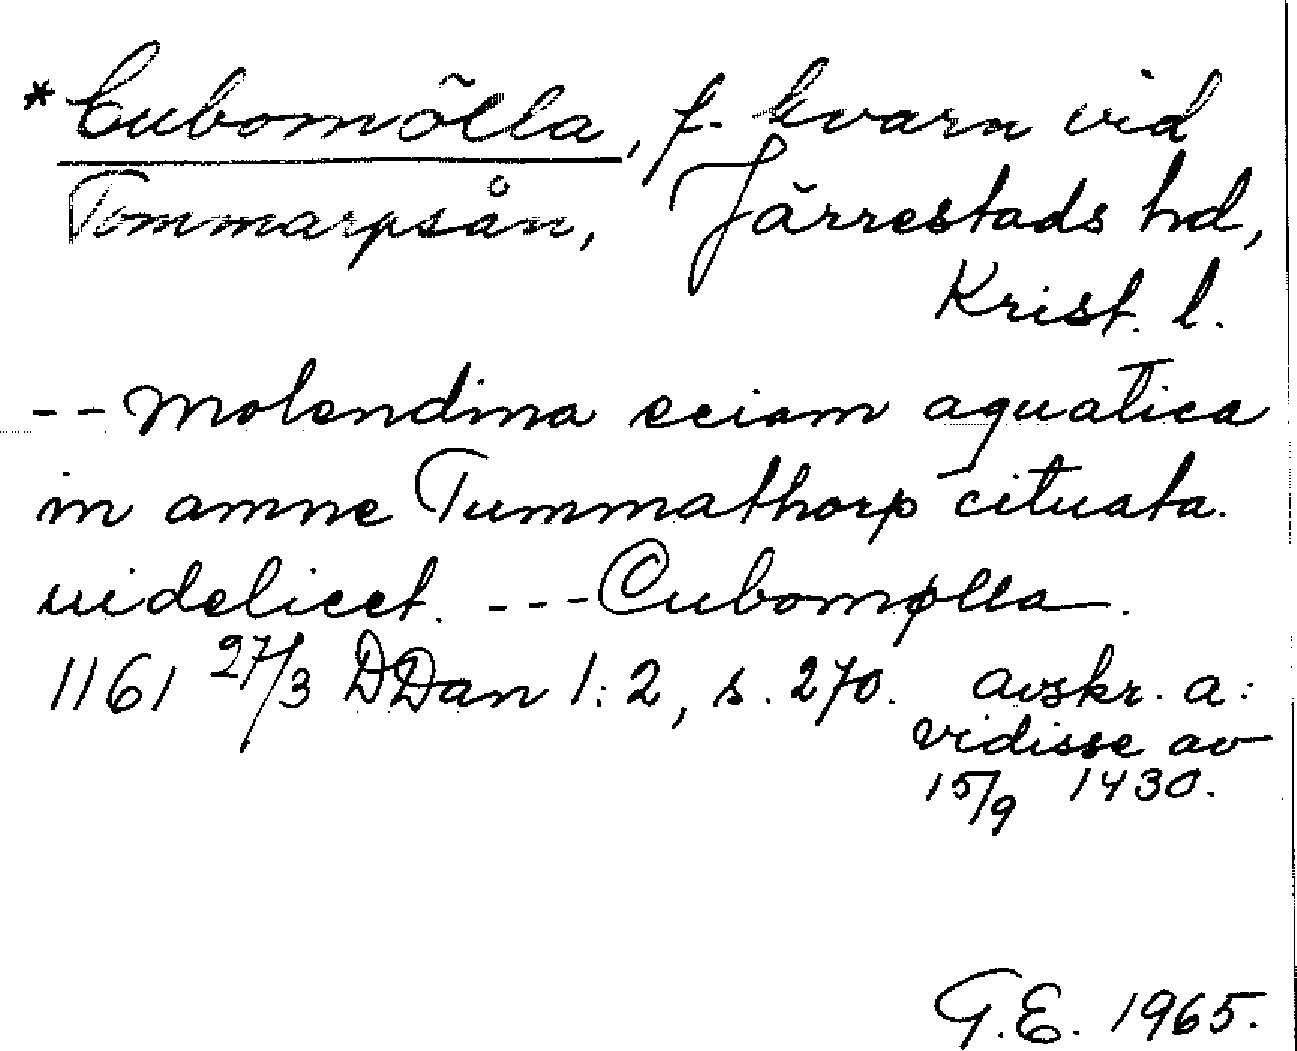 *Cubomölla, f. kvarn vid
Tommarpsån, Järrestads hd,
Krist. l.
-- molendina eciam aquatica
in amne Tummathorp cituata.
uidelicet. --- Cubomølla.
1161 27/3 DDan 1:2, s. 270. avskr. a:
vidisse av
15/9 1430.
G.E. 1965.